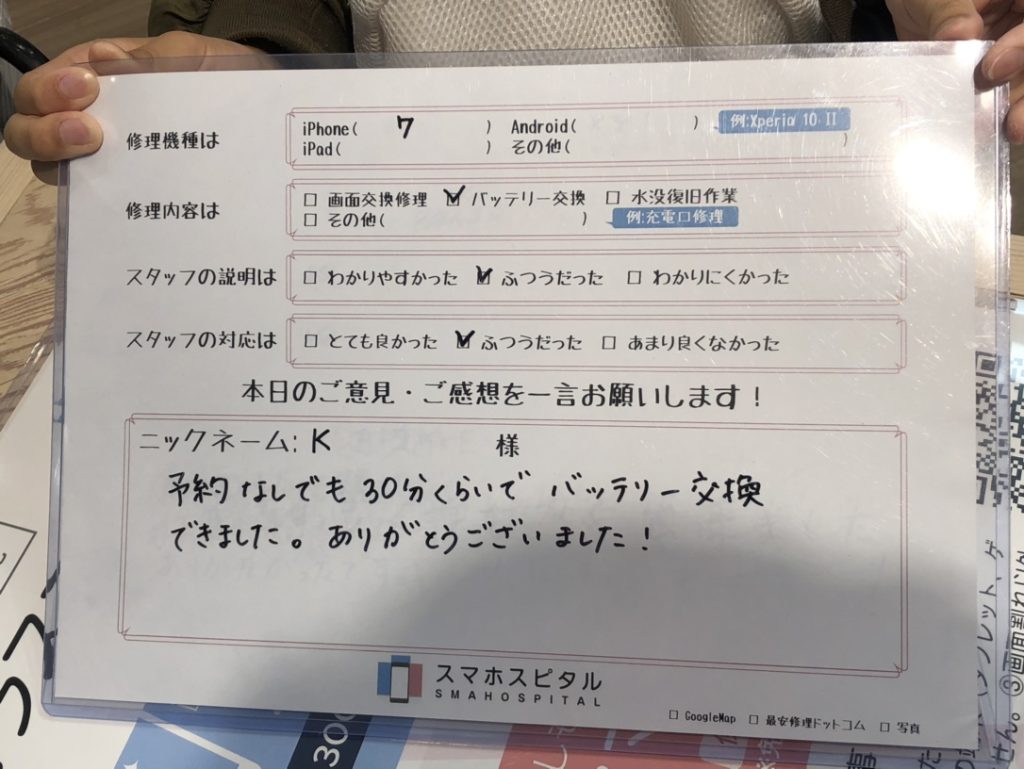 修理機種は
iPhone( 7 ) Android( ) 例:Xperia 10 II
iPad( ) その他( )
修理内容は
□ 画面交換修理 ☑ バッテリー交換 □ 水没復旧作業
□ その他( ) 例:充電口修理
スタッフの説明は □ わかりやすかった ☑ ふつうだった □ わかりにくかった
スタッフの対応は □ とても良かった ☑ ふつうだった □ あまり良くなかった
本日のご意見・ご感想を一言お願いします!
ニックネーム: K 様
予約なしでも30分くらいでバッテリー交換
できました。ありがとうございました!
スマホスピタル
SMAHOSPITAL
□ GoogleMap □ 最安修理ドットコム □ 写真
300